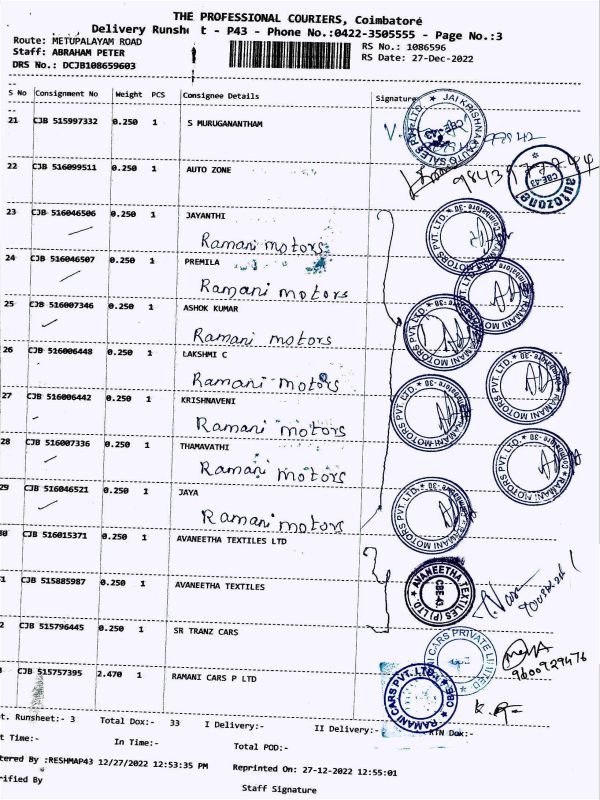 THE PROFESSIONAL COURIERS, Coimbatore
Delivery Runsheet - P43 - Phone No.:0422-3505555 - Page No.:3
Route: METUPALAYAM ROAD
RS No.: 1086596
Staff: ABRAHAM PETER
RS Date: 27-Dec-2022
DRS No.: DCJB108659603
S No Consignment No Weight PCS Consignee Details Signature
21 CJB 515997332 0.250 1 S MURUGANANTHAM
JAI KRISHNA AUTO SALES PVT. LTD.
22 CJB 516099511 0.250 1 AUTO ZONE
autozone CBE-43
23 CJB 516046506 0.250 1 JAYANTHI
Ramani motors
RAMANI MOTORS PVT. LTD. Coimbatore-30
24 CJB 516046507 0.250 1 PREMILA
Ramani motors
RAMANI MOTORS PVT. LTD. Coimbatore-30
25 CJB 516007346 0.250 1 ASHOK KUMAR
Ramani motors
RAMANI MOTORS PVT. LTD. Coimbatore-30
26 CJB 516006448 0.250 1 LAKSHMI C
Ramani motors
RAMANI MOTORS PVT. LTD. Coimbatore-30
27 CJB 516006442 0.250 1 KRISHNAVENI
Ramani motors
RAMANI MOTORS PVT. LTD. Coimbatore-30
28 CJB 516007336 0.250 1 THAMAVATHI
Ramani motors
RAMANI MOTORS PVT. LTD. Coimbatore-30
29 CJB 516046521 0.250 1 JAYA
Ramani motors
RAMANI MOTORS PVT. LTD. Coimbatore-30
30 CJB 516015371 0.250 1 AVANEETHA TEXTILES LTD
1 CJB 515885987 0.250 1 AVANEETHA TEXTILES
AVANEETHA TEXTILES (P) LTD. CBE-43
2 CJB 515796445 0.250 1 SR TRANZ CARS
CARS PRIVATE LIMITED
9600929476
CJB 515757395 2.470 1 RAMANI CARS P LTD
RAMANI CARS PVT. LTD. CBE
t. Runsheet:- 3 Total Dox:- 33 I Delivery:- II Delivery:- RTN Dox:-
t Time:- In Time:- Total POD:-
tered By :RESHMAP43 12/27/2022 12:53:35 PM Reprinted On: 27-12-2022 12:55:01
rified By Staff Signature